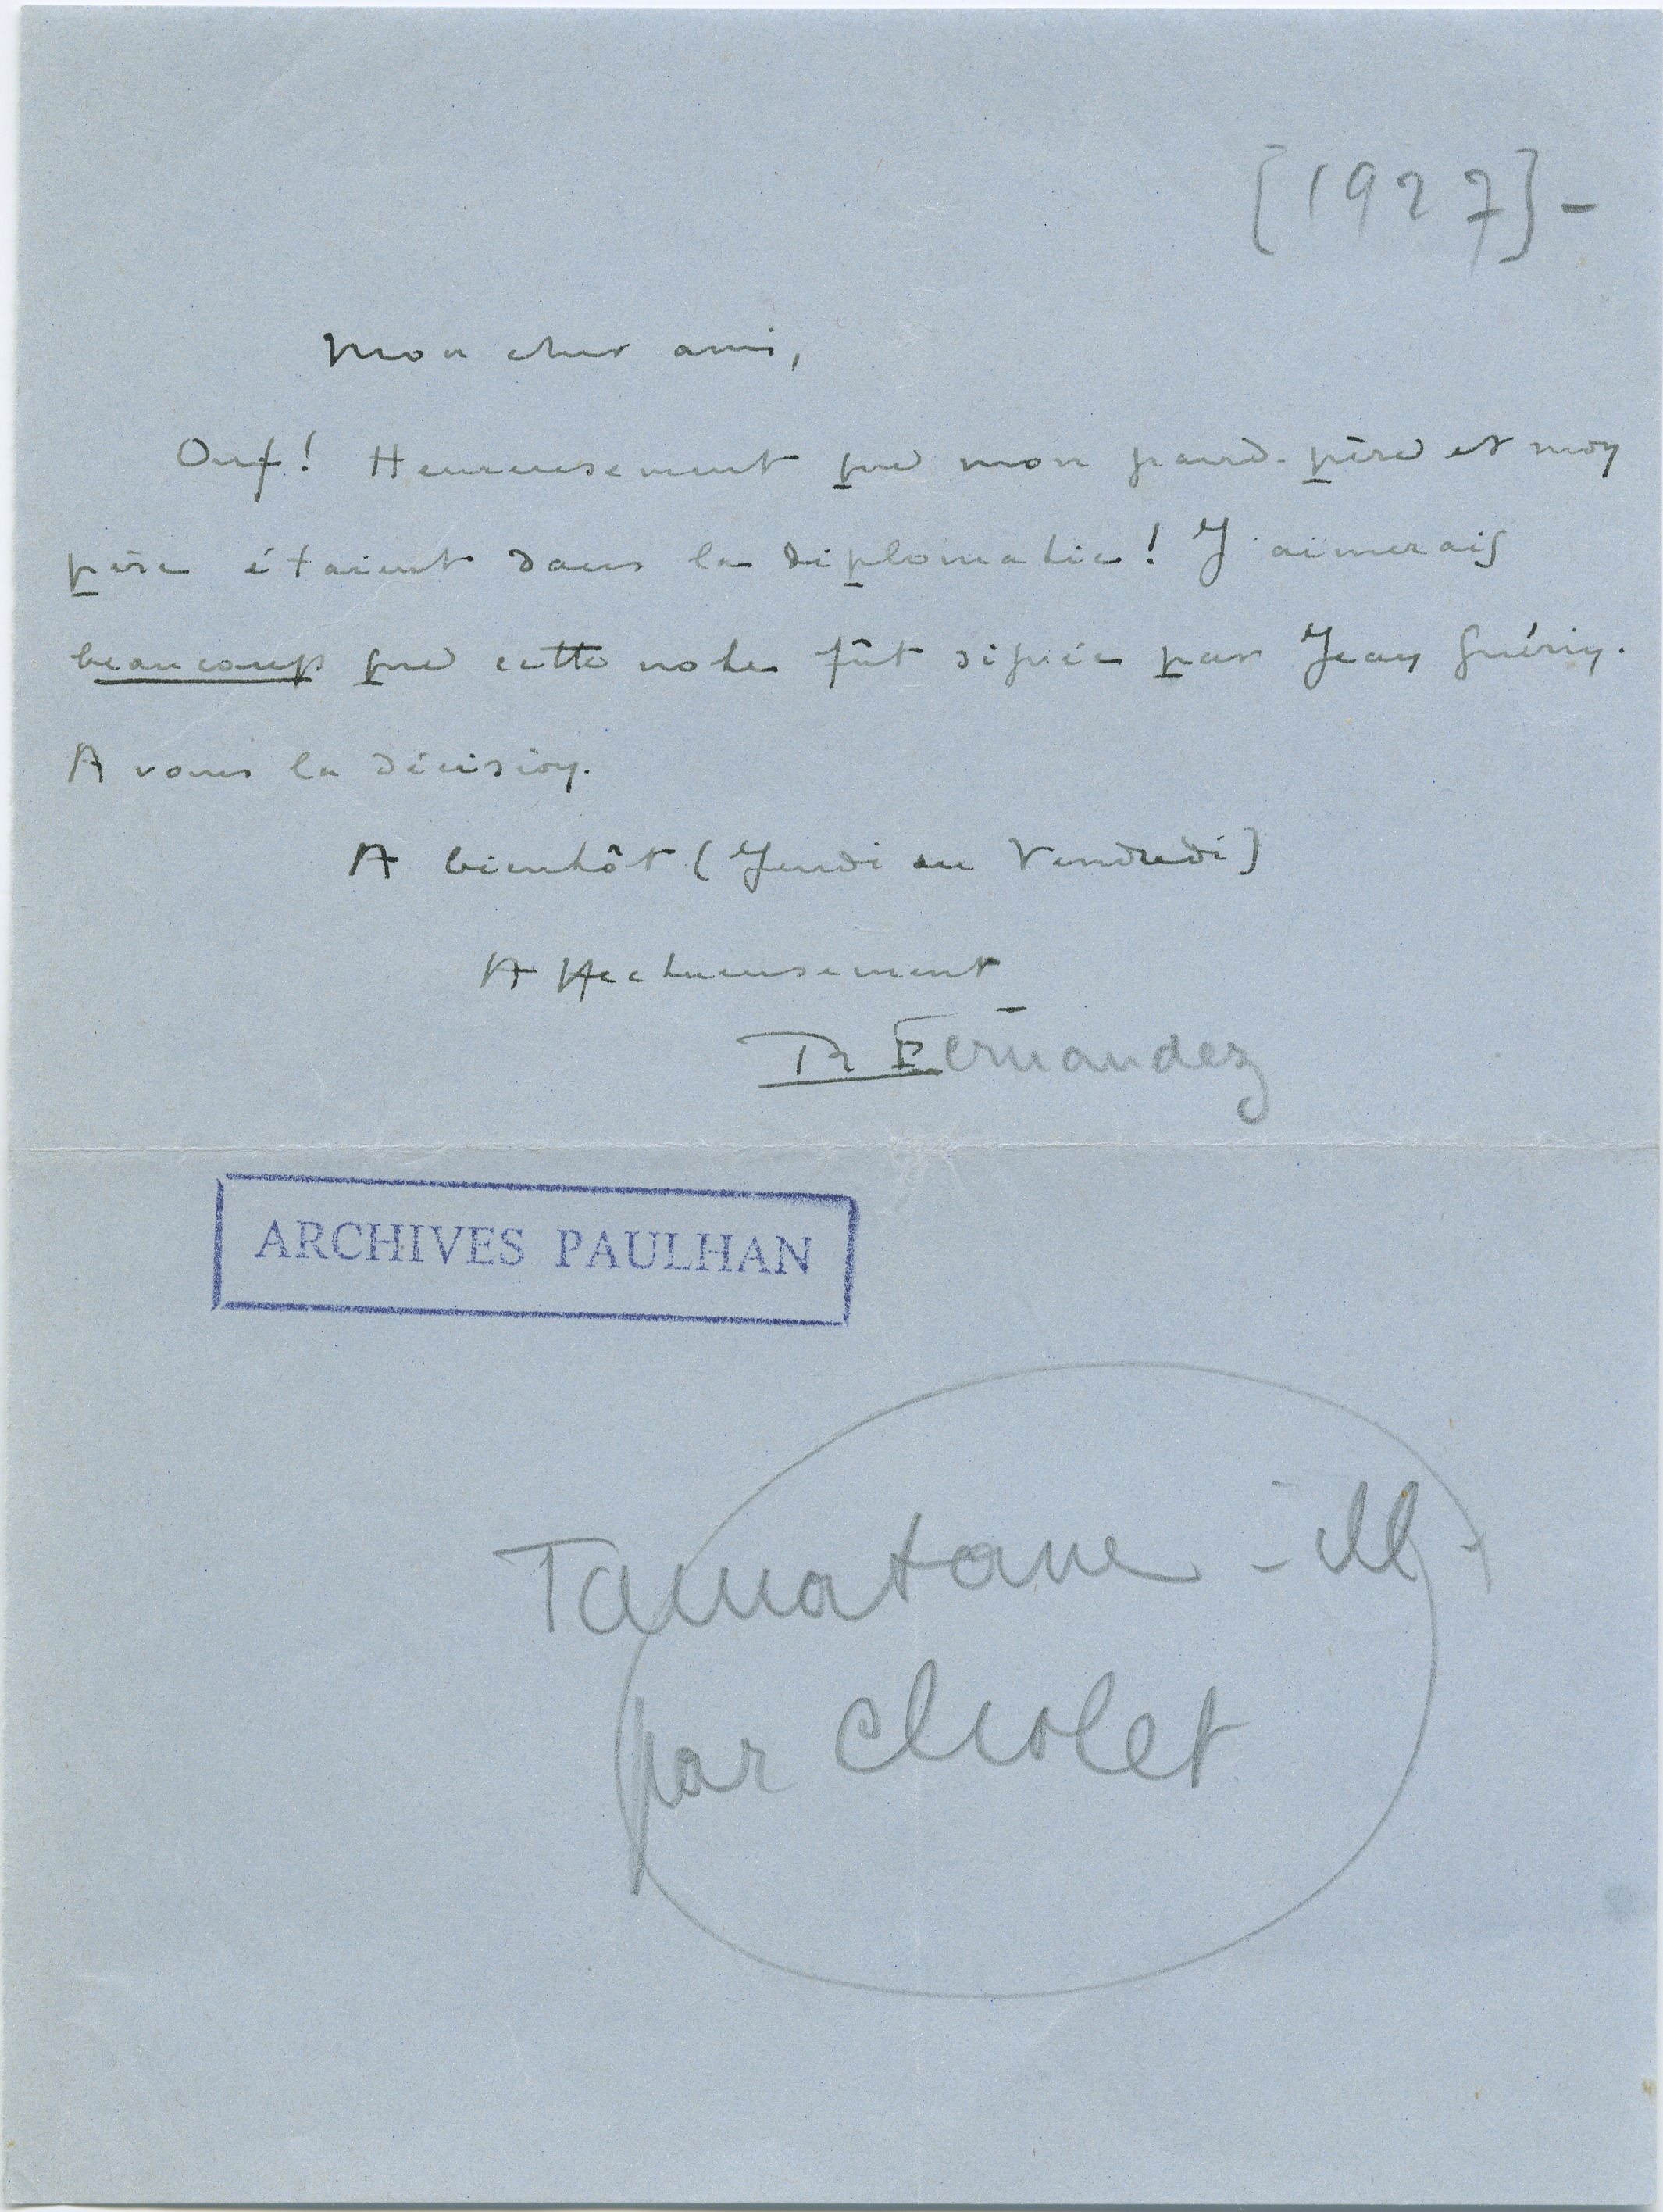 [1927]-
Mon cher ami,
Ouf! Heureusement que mon grand-père et mon
père étaient dans la diplomatie! J'aimerais
beaucoup que cette note fût signée par Jean Guérin.
A vous la décision.
A bientôt (Jeudi ou Vendredi)
Affectueusement
R Fernandez
ARCHIVES PAULHAN
par Cholet